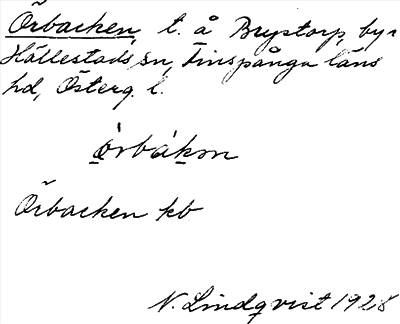 Örbacken, t. å Brystorp, by i
Hällestads sn, Finspånga läns
hd, Österg. l.
òrbákən
Örbacken kb
N. Lindqvist 1928